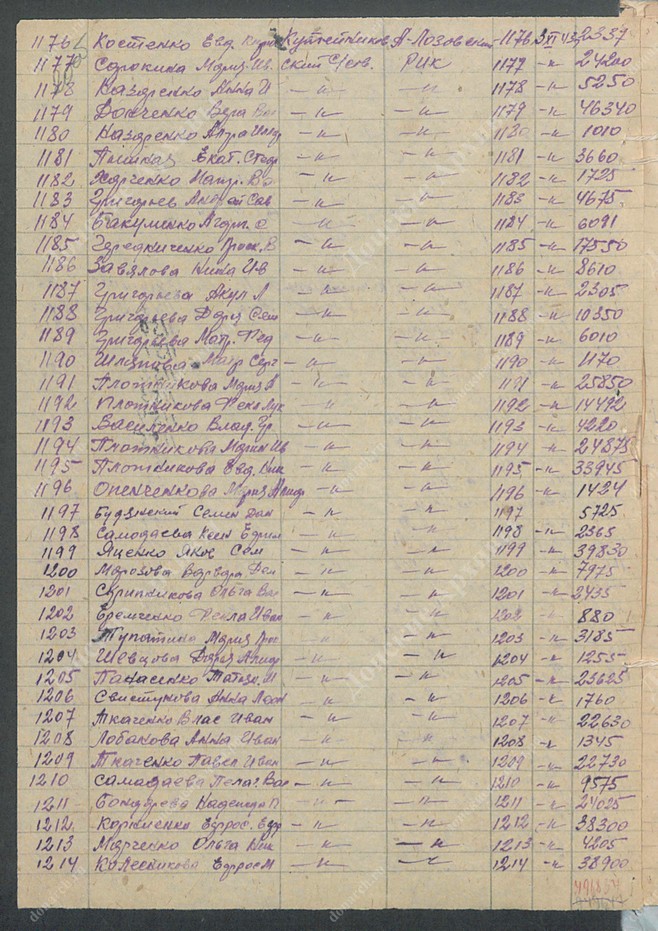 1176 Костенко Евд. Кутейников А-Лозовский 1176 3 VI 43 2337
1177 Сорокина Мария Ив. ский С/сов. РИК 1177 -"- 24200
1178 Назаренко Анна И -"- -"- 1178 -"- 5250
1179 Донченко Вера -"- -"- 1179 -"- 46340
1180 Назаренко -"- -"- 1180 -"- 1010
1181 Екат. -"- -"- 1181 -"- 3660
1182 Харченко Матр. -"- -"- 1182 -"- 1725
1183 Григорьев Андрей Сав -"- -"- 1183 -"- 4675
1184 Бакуменко -"- -"- 1184 -"- 6091
1185 Чередниченко -"- -"- 1185 -"- 17550
1186 Завялова Нина Ив -"- -"- 1186 -"- 8610
1187 Григорьева Акул Л -"- -"- 1187 -"- 2305
1188 Григорьева Дария Сем -"- -"- 1188 -"- 10350
1189 Григорьева Матр. Фед -"- -"- 1189 -"- 6010
1190 Матр Серг -"- -"- 1190 -"- 1170
1191 Плотникова Мария -"- -"- 1191 -"- 25850
1192 Плотникова Фекл Лук -"- -"- 1192 -"- 14492
1193 Василенко Влад. Гр. -"- -"- 1193 -"- 4220
1194 Плотникова Мария Ив -"- -"- 1194 -"- 24875
1195 Плотникова Евд. Ник -"- -"- 1195 -"- 35945
1196 Опенченкова Мария -"- -"- 1196 -"- 1424
1197 Будянский Семен Дан -"- -"- 1197 5725
1198 Самодаева Ефим -"- -"- 1198 -"- 2365
1199 Яценко Яков Сам -"- -"- 1199 -"- 39830
1200 Морозова Варвара -"- -"- 1200 -"- 7975
1201 Скрипникова Ольга Вас -"- -"- 1201 -"- 2435
1202 Еремченко Фекла Иван -"- 1202 -"- 880
1203 Мария -"- 1203 -"- 3185
1204 Шевцова Дария -"- -"- 1204 -"- 1255
1205 Панасенко Татьян. И -"- -"- 1205 -"- 23625
1206 Свистунова Анна Леон -"- -"- 1206 -"- 1760
1207 Ткаченко Влас Иван -"- -"- 1207 -"- 22630
1208 Лобакова Анна Иван -"- -"- 1208 -"- 1345
1209 Ткаченко Павел Иван -"- -"- 1209 -"- 22730
1210 Самодаева Пелаг. Вас -"- -"- 1210 -"- 9575
1211 Бондарева Надежда П -"- -"- 1211 -"- 24025
1212 Корниенко Ефрос. -"- -"- 1212 -"- 38300
1213 Марченко Ольга Ник -"- -"- 1213 -"- 4205
1214 Колесникова Ефрос М -"- -"- 1214 -"- 38900